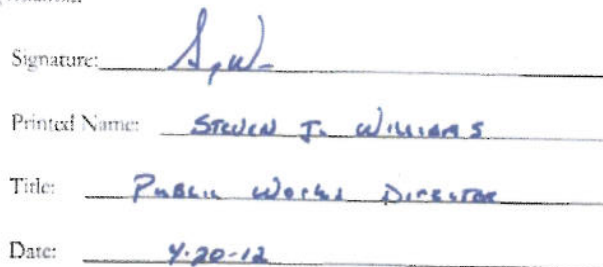 Signature:
Printed Name: STEVEN J. WILLIAMS
Title: PUBLIC WORKS DIRECTOR
Date: 4-20-12